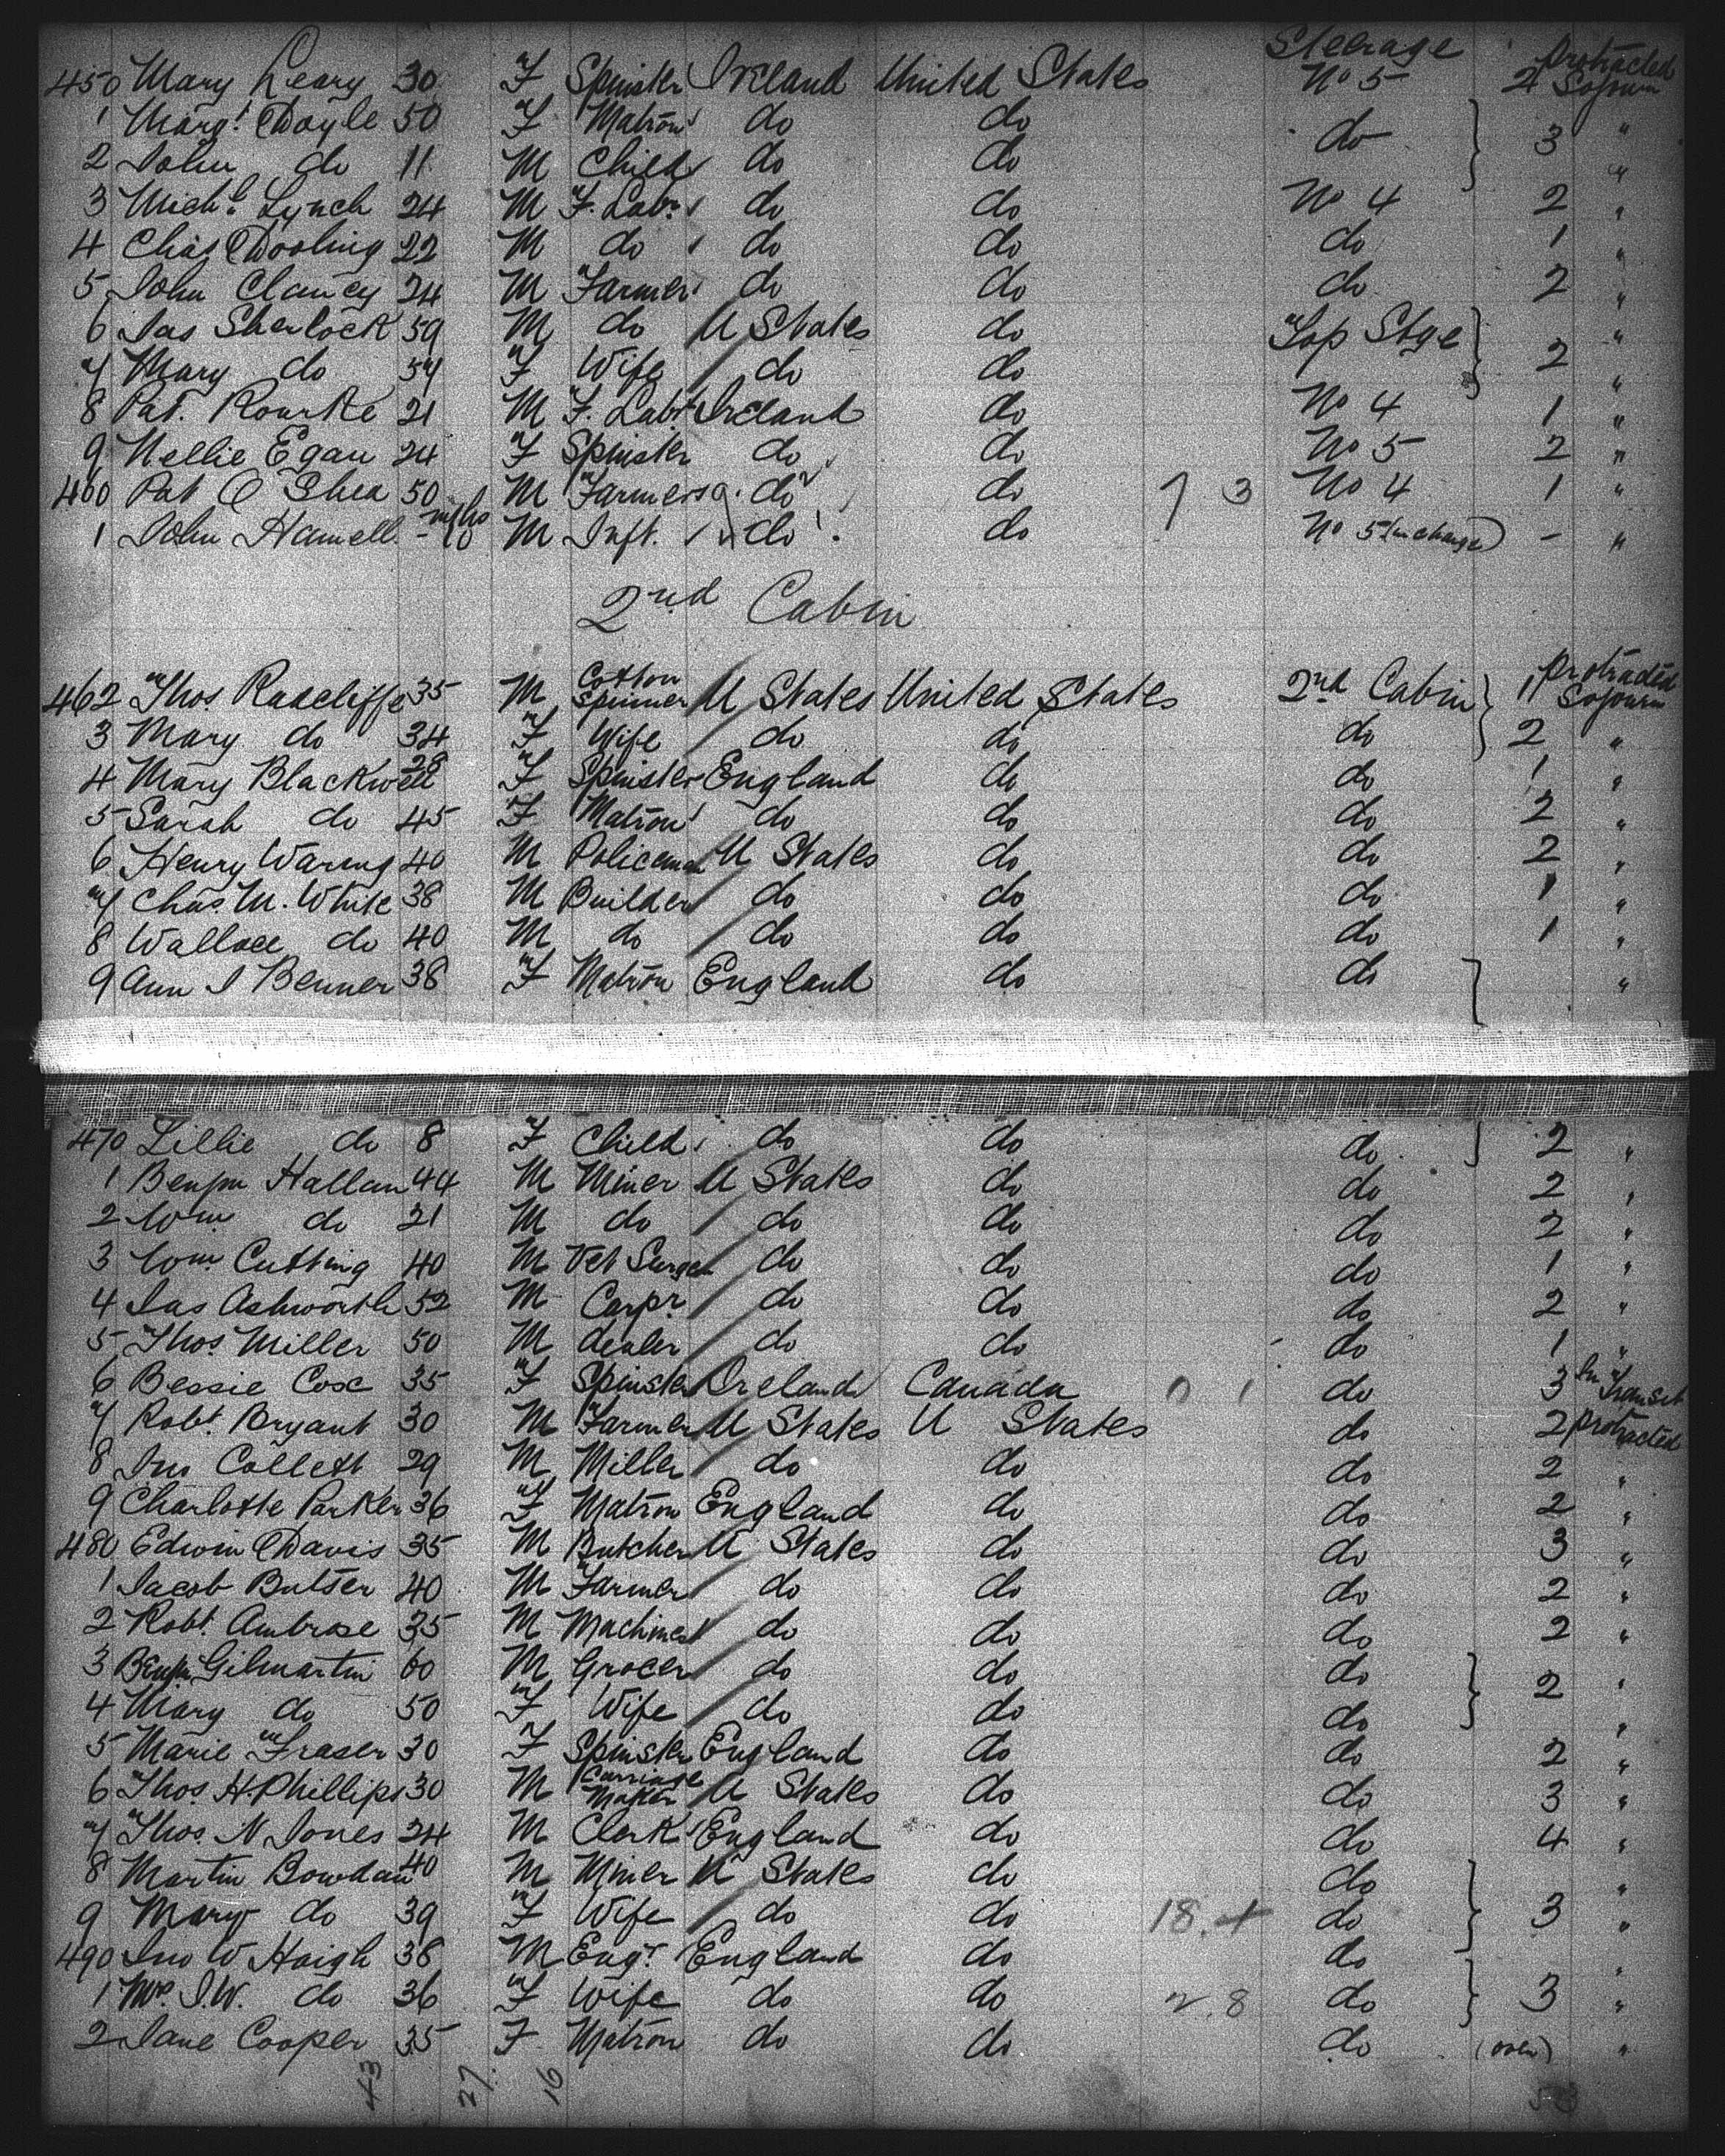 Steerage protracted
450 Mary Leary 30 F Spinster Ireland United States No 5 2 Sojourn
1 Margt. Doyle 50 F Matron do do do } 3 "
2 John do 11 M Child do do "
3 Michl. Lynch 24 M F. Labr. do do No 4 2 "
4 Chas. Dooling 22 M do do do do 1 "
5 John Clancy 24 M Farmer do do do 2 "
6 Jas Sherlock 59 M do U States do Top Stge } "
7 Mary do 54 F Wife do do 2 "
8 Pat. Rourke 21 M F. Labr Ireland do No 4 1 "
9 Nellie Egan 24 F Spinster do do No 5 2 "
460 Pat O Shea 50 M Farmer do do 7 3 No 4 1 "
1 John Hamell - mths 10 M Inft. do do No 5 (in charge) - "
2nd Cabin
462 Thos Radcliffe 35 M Cotton Spinner U States United States 2nd Cabin } 1 protracted Sojourn
3 Mary do 34 F Wife do do do 2 "
4 Mary Blackwell 28 F Spinster England do do 1 "
5 Sarah do 45 F Matron do do do 2 "
6 Henry Waring 40 M Policeman U States do do 2 "
7 Chas. M. White 38 M Builder do do do 1 "
8 Wallace do 40 M do do do do 1 "
9 Ann I Benner 38 F Matron England do do } "
470 Lillie do 8 F Child do do do 2 "
1 Benjm Hallam 44 M Miner U States do do 2 "
2 Wm do 21 M do do do do 2 "
3 Wm. Cutting 40 M Vet Surgeon do do do 1 "
4 Jas Ashworth 52 M Carpr do do do 2 "
5 Thos. Miller 50 M dealer do do do 1 "
6 Bessie Cox 35 F Spinster Ireland Canada 0 1 do 3 In Transit
7 Robt. Bryant 30 M Farmer U States U States do 2 protracted
8 Jno Collett 29 M Miller do do do 2 "
9 Charlotte Parker 36 F Matron England do do 2 "
480 Edwin Davis 35 M Butcher U States do do 3 "
1 Jacob Butser 40 M Farmer do do do 2 "
2 Robt. Ambrose 35 M Machinest do do do 2 "
3 Benjm Gilmartin 60 M Grocer do do do } 2 "
4 Mary do 50 F Wife do do do "
5 Marie Fraser 30 F Spinster England do do 2 "
6 Thos. H. Phillips 30 M Carriage Maker U States do do 3 "
7 Thos. N Jones 24 M Clerk England do do 4 "
8 Martin Bowdan 40 M Miner U States do do } "
9 Mary do 39 F Wife do do 18. 4 do 3 "
490 Jno W Haigh 38 M Engr. England do do } "
1 Mrs. J.W. do 36 F Wife do do 2.8 do 3 "
2 Jane Cooper 35 F Matron do do do (over) "
43 27 16